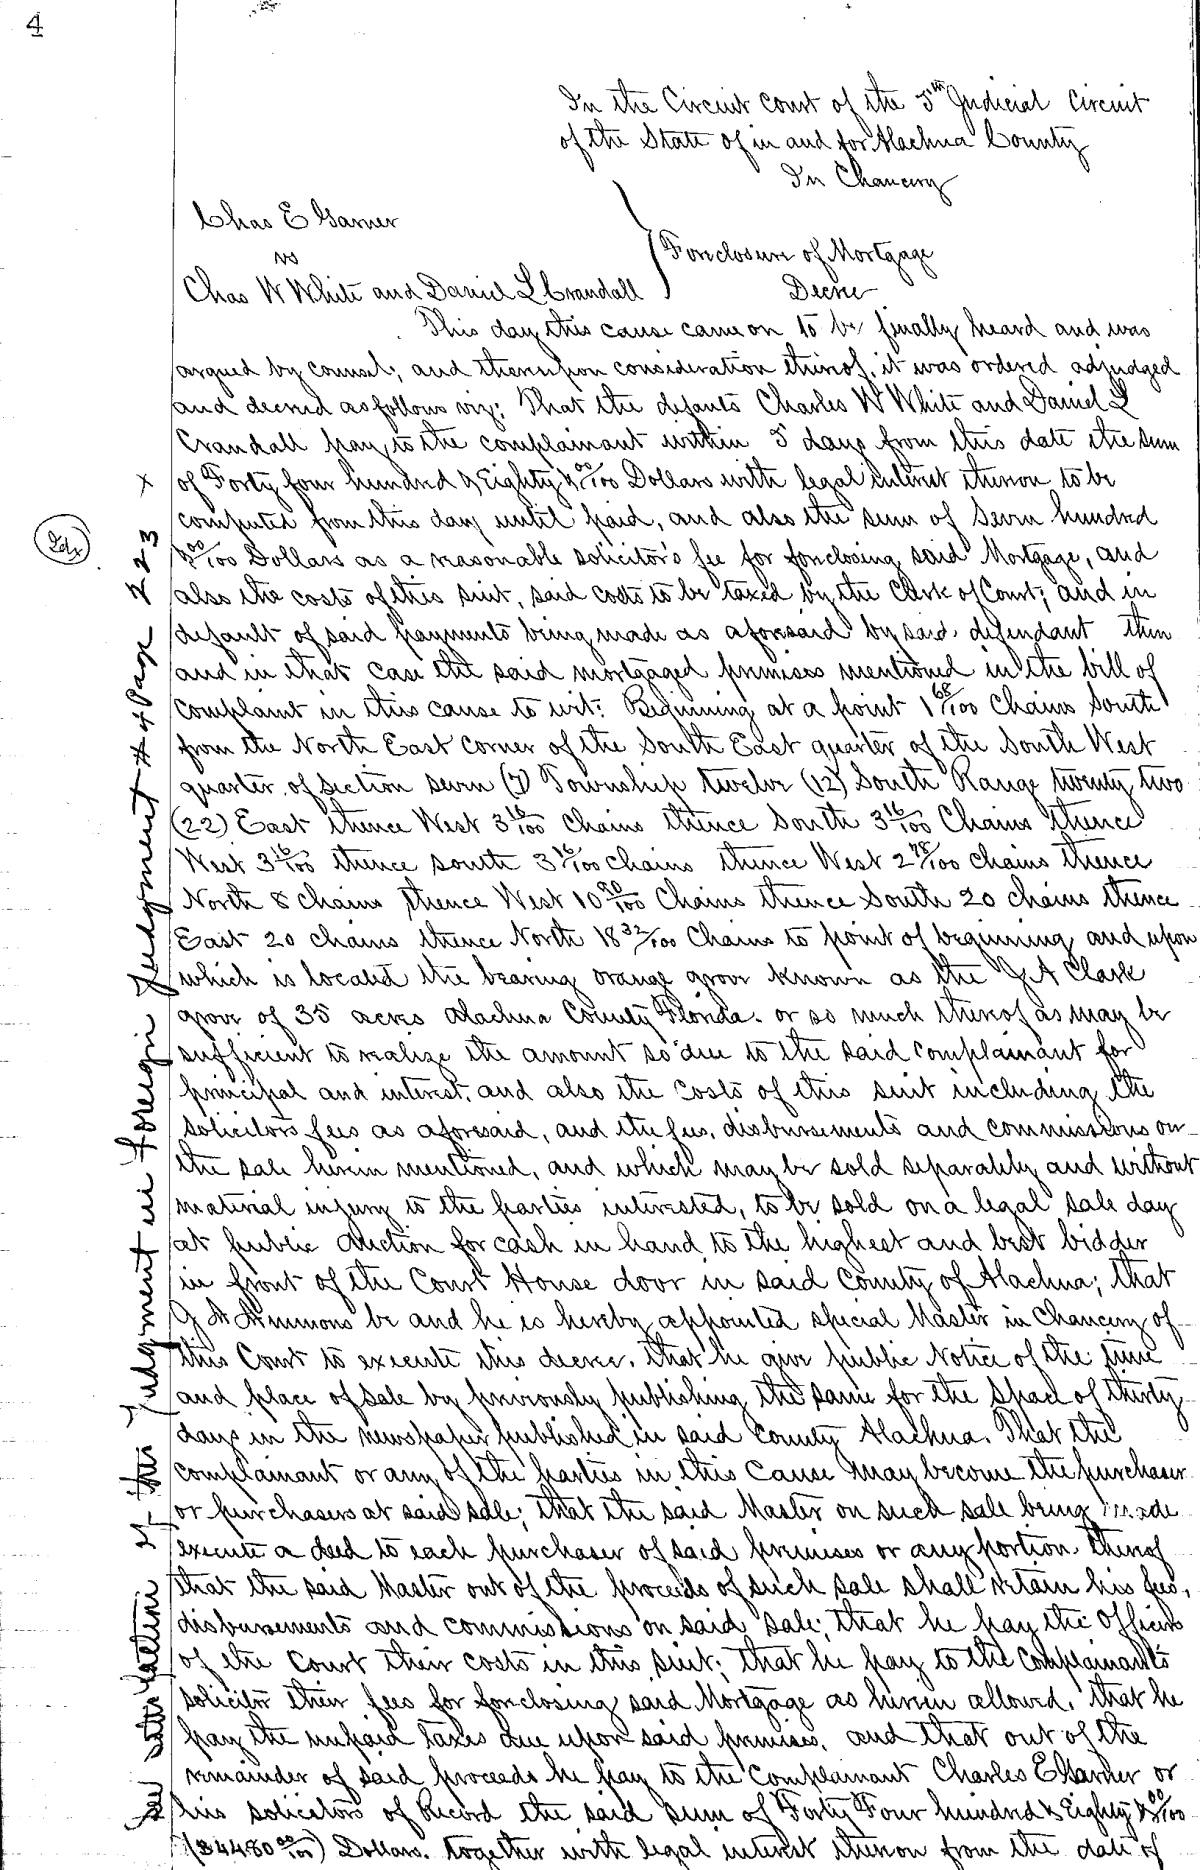 4
In the Circuit Court of the 5th Judicial Circuit
of the State of in and for Alachua County
In Chancery
Chas E Garner
vs
Chas W White and Daniel L Crandall
Foreclosure of Mortgage
Decree
This day this cause came on to be finally heard and was
argued by counsel; and thereupon consideration thereof, it was ordered adjudged
and decreed as follows viz: That the defants Charles W White and Daniel L
Crandall pay to the complainant within 5 days from this date the sum
of Forty four hundred & Eighty & 00/100 Dollars with legal interest thereon to be
computed from this day until paid, and also the sum of Seven hundred
& 00/100 Dollars as a reasonable solicitor's fee for foreclosing said Mortgage, and
also the costs of this suit, said costs to be taxed by the Clerk of Court; and in
default of said payments being made as aforesaid by said defendant then
and in that case the said mortgaged premises mentioned in the bill of
complaint in this cause to wit: Beginning at a point 1 68/100 Chains South
from the North East corner of the South East quarter of the South West
quarter of section seven (7) Township twelve (12) South Range twenty two
(22) East thence West 3 16/100 Chains thence South 3 16/100 Chains thence
West 3 16/100 thence south 3 16/100 chains thence West 2 78/100 chains thence
North 8 chains thence West 10 90/100 Chains thence South 20 chains thence
East 20 chains thence North 18 32/100 Chains to point of beginning and upon
which is located the bearing orange grove known as the J A Clark
grove of 35 acres Alachua County Florida. or so much thereof as may be
sufficient to realize the amount so due to the said complainant for
principal and interest. and also the costs of this suit including the
solicitors fees as aforesaid, and the fees, disbursements and commissions on
the sale herein mentioned, and which may be sold separately and without
material injury to the parties interested, to be sold on a legal sale day
at public Auction for cash in hand to the highest and best bidder
in front of the Court House door in said County of Alachua; that
Ammons be and he is hereby appointed special Master in Chancery of
this Court to execute this decree. that he give public Notice of the time
and place of sale by previously publishing the same for the space of thirty
days in the newspaper published in said County Alachua. That the
complainant or any of the parties in this Cause may become the purchaser
or purchasers at said sale; that the said Master on such sale being made
execute a deed to each purchaser of said premises or any portion thereof
that the said Master out of the proceeds of such sale shall retain his fees,
disbursements and commissions on said sale; that he pay the Officers
of the Court their costs in this suit; that he pay to the complainants
solicitor their fees for foreclosing said Mortgage as herein allowed, that he
pay the unpaid taxes due upon said premises. and that out of the
remainder of said proceeds he pay to the Complainant Charles E Garner or
his solicitors of Record the said sum of Forty Four hundred & Eighty & 00/100
($4480 00/100) Dollars. together with legal interest thereon from the date of
see satisfaction of this Judgment in Foreign Judgment # 4 Page 223 x